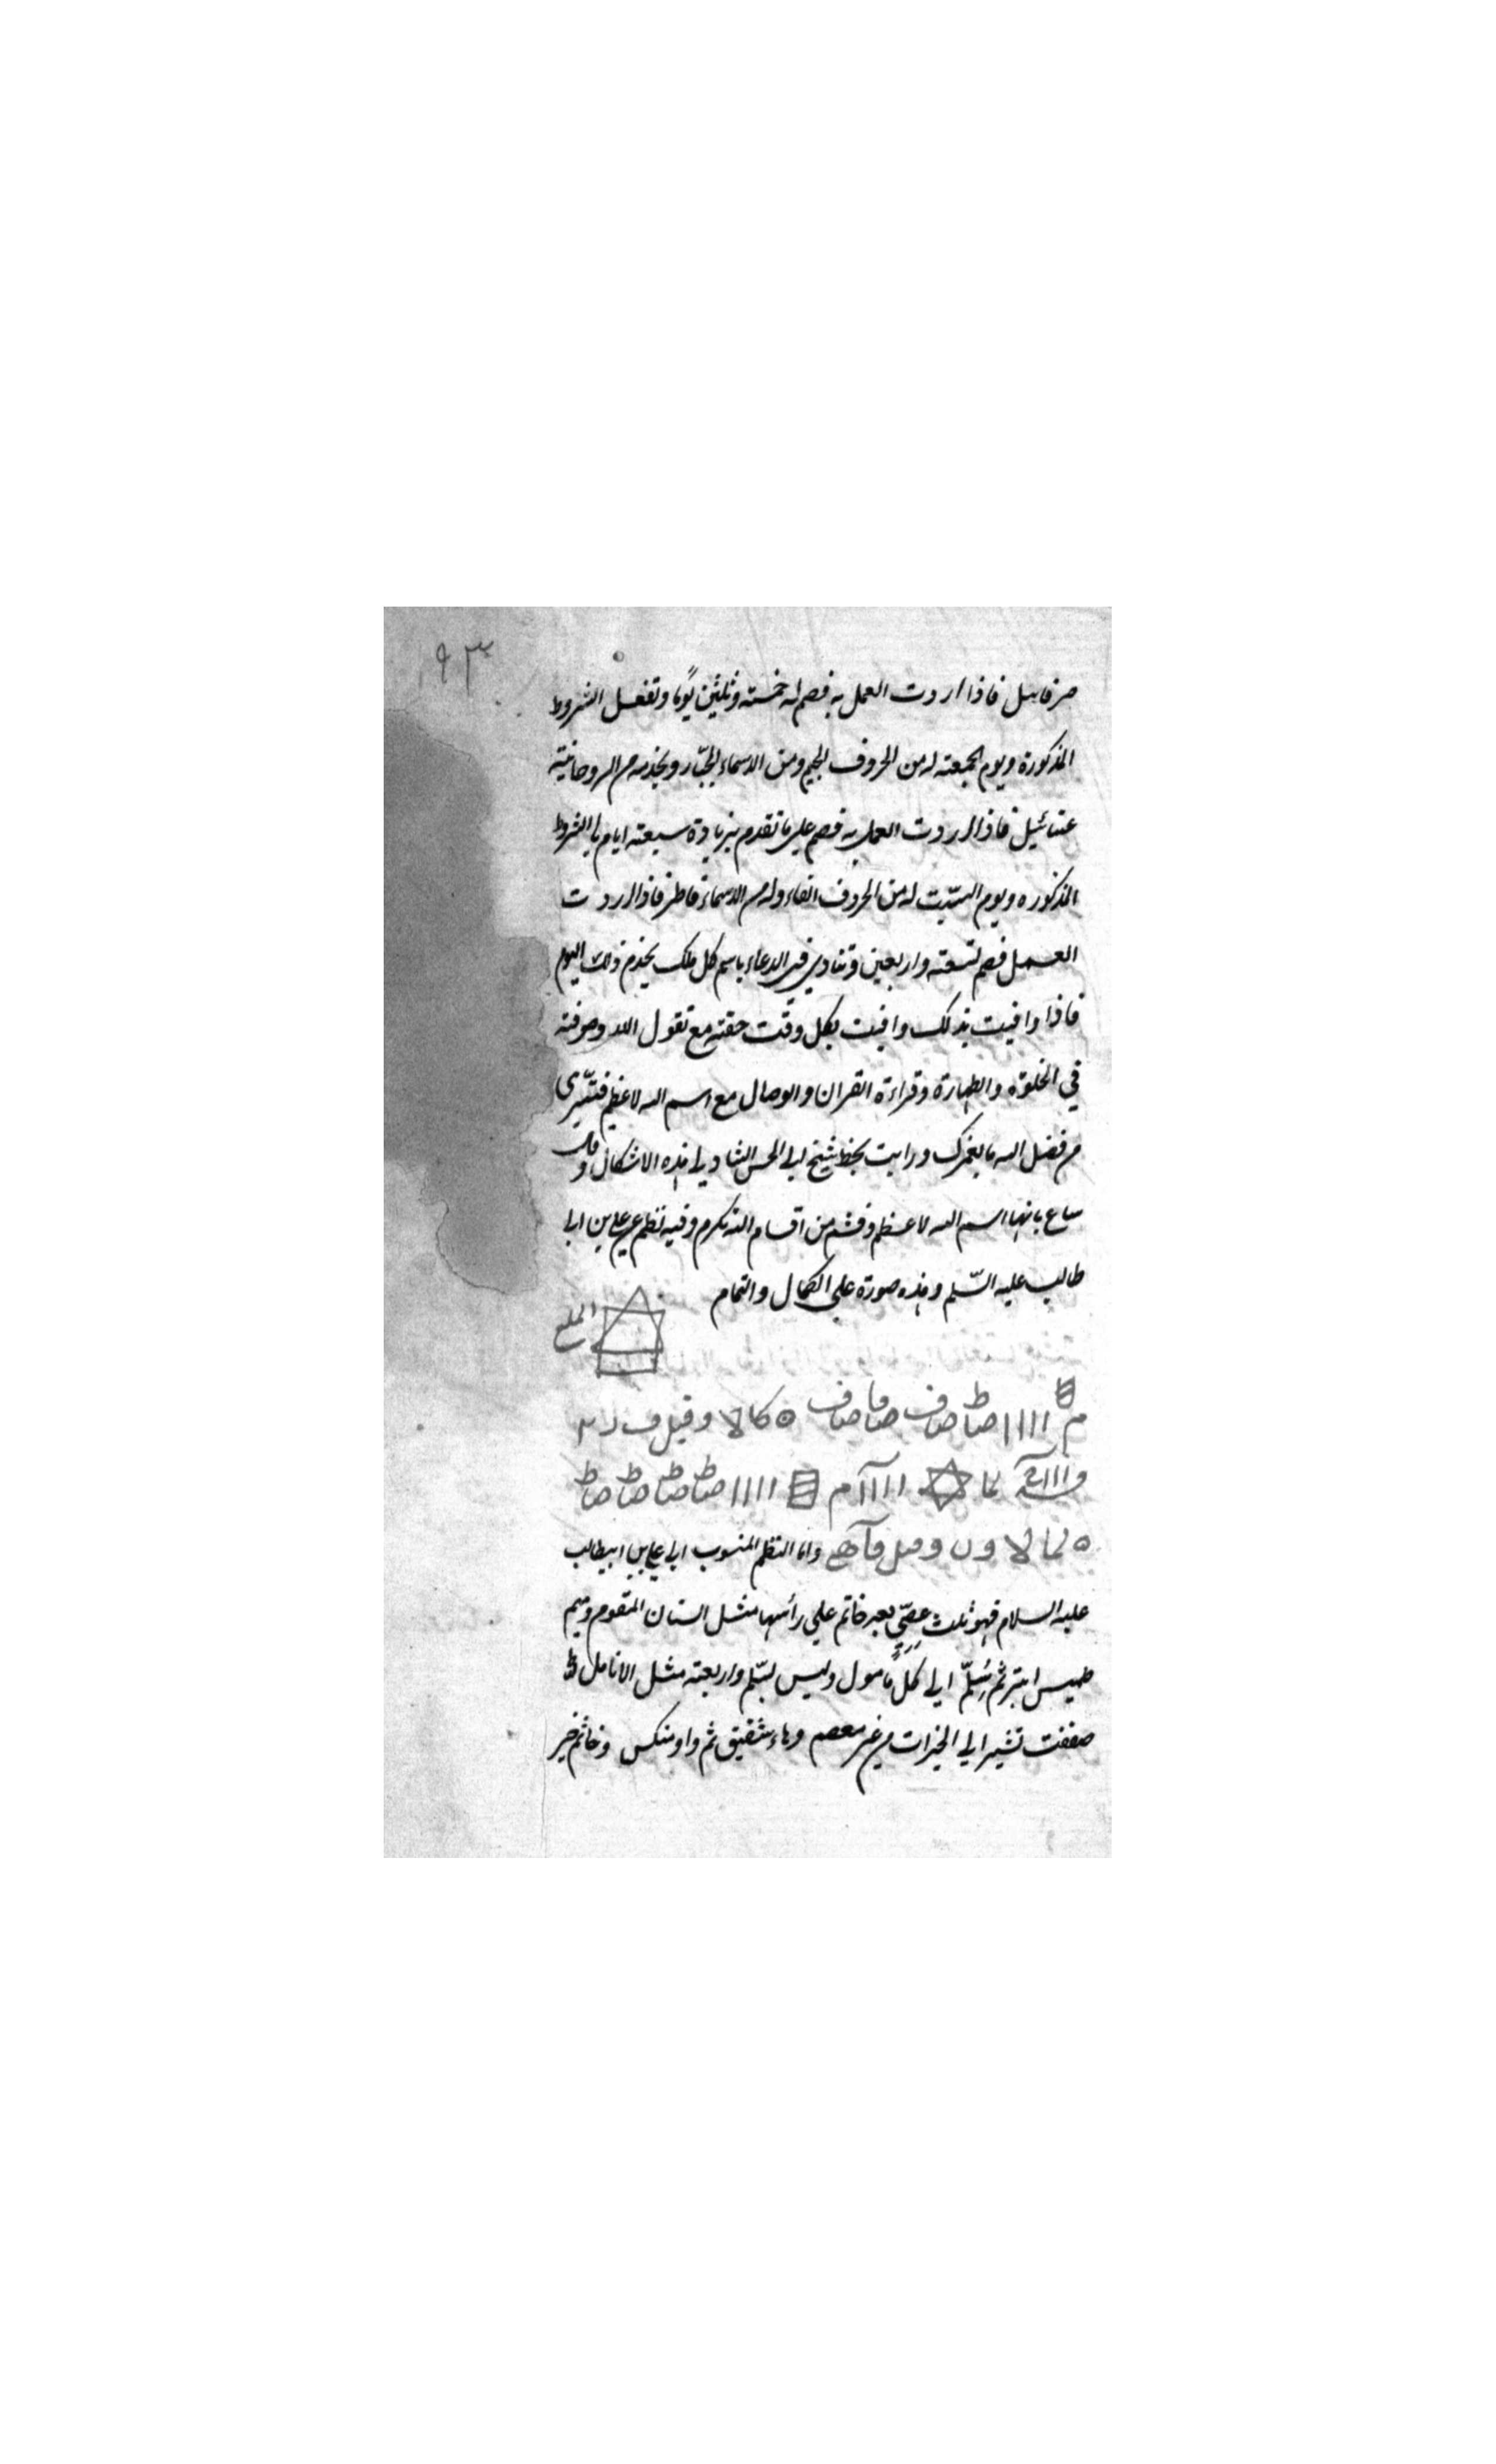 ٩٣
صرفاسل فاذا اردت العمل به فصم له خمسته وثلثين يومًا وتفعل الشروط
المذكورة ويوم الجمعته له من الحروف الجيم ومن الاسماء الجبّار ويخدمه من الروحانيته
عنيائيل فاذا اردت العمل به فصم على ما تقدم بزيادة سبعته ايام بالشروط
المذكوره ويوم السّبت له من الحروف الفاء وله من الاسماء فاطر فاذا اردت
العمل فصم لتسعته واربعين وتنادي في الدعاء باسم كل ملك يخدم ذلك اليوم
فاذا وافيت بذلك وافيت بكل وقت حقته مع تقول الله وصرفته
في الخلوة والطهارة وقراءة القران والوصال مع اسم الله لاعظم فتيرى
من فضل الله ما يغمرك ورايت بخط شيخ ابى الحسن الشاديلى هذه الاشكال وقال
بانها اسم الله لاعظم وقسم من اقسام الله مكرم وفيه نظم عن علي بن ابى
طالب عليه السّلم وهذه صورة على الكمال والتمام
واما النظم المنسوب الى علي بن ابيطالب
عليه السلام فهو ثلث عصّي بعد خاتم على رأسها مثل السنان المتقوم وميم
طميس ابتر ثم سُلّم الى كلّ مامول وليس بسلّم واربعته مثل الانامل
صففت تشير الى الخيرات من غير معصم وهاء شقيق ثم واو منكس وخاتم خير